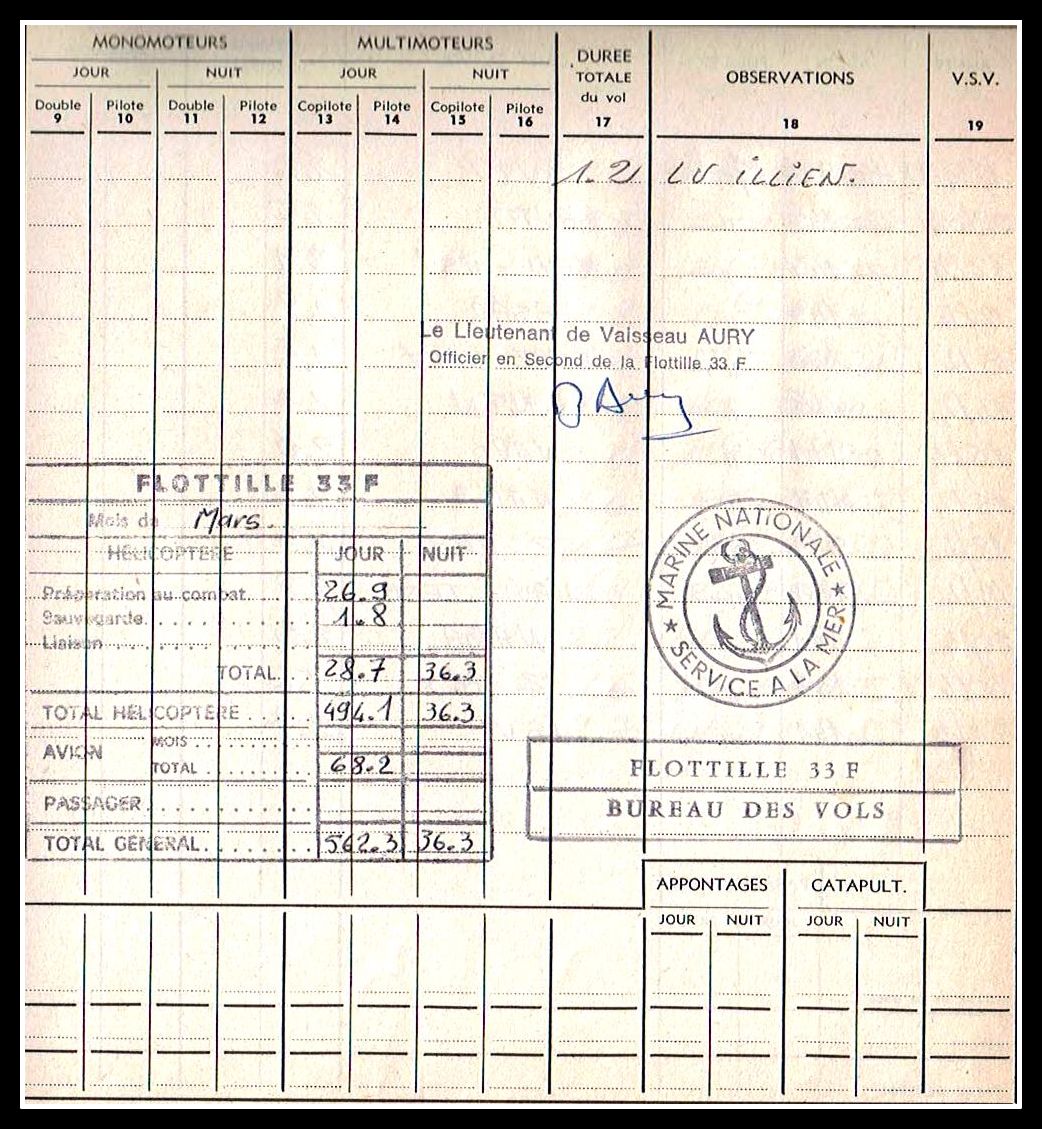 MONOMOTEURS MULTIMOTEURS DUREE TOTALE du vol OBSERVATIONS V.S.V.
JOUR NUIT JOUR NUIT
Double Pilote Double Pilote Copilote Pilote Copilote Pilote
9 10 11 12 13 14 15 16 17 18 19
1.2 LV ILLIEN.
Le Lieutenant de Vaisseau AURY
Officier en Second de la Flottille 33 F
Aury
FLOTTILLE 33 F
Mois de Mars.
HÉLICOPTERE JOUR NUIT
Préparation au combat 26.9
Sauvegarde 1.8
Liaison
TOTAL 28.7 36.3
TOTAL HÉLICOPTERE 494.1 36.3
AVION MOIS
TOTAL 68.2
PASSAGER
TOTAL GÉNÉRAL 562.3 36.3
MARINE NATIONALE ★ SERVICE A LA MER ★
FLOTTILLE 33 F
BUREAU DES VOLS
APPONTAGES CATAPULT.
JOUR NUIT JOUR NUIT